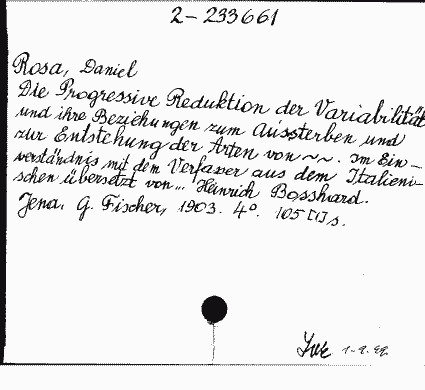 2-233661
Rosa, Daniel
Die Progressive Reduktion der Variabilität
und ihre Beziehungen zum Aussterben und
zur Entstehung der Arten von ~~. Im Ein-
verständnis mit dem Verfasser aus dem Italieni-
schen übersetzt von... Heinrich Bosshard.
Jena, G. Fischer, 1903. 4°. 105 [1] s.